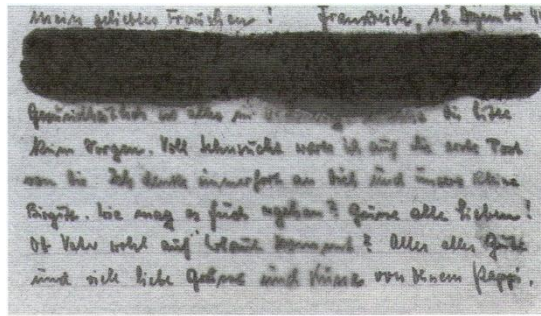 Mein geliebtes Frauchen! Frankreich, 18. Dezember 4
Gesundheitlich ist alles in bitte
keine Sorgen. Voll Sehnsucht warte ich auf die erste Post
von dir. Ich denke immerfort an Dich und unsere kleine
Birgit. Wie mag es Euch ergehen? Grüsse alle Lieben!
Ob Vater wohl auf Urlaub kommt? Alles alles Gute
und viele liebe Grüsse und Küsse von Deinem Pappi.